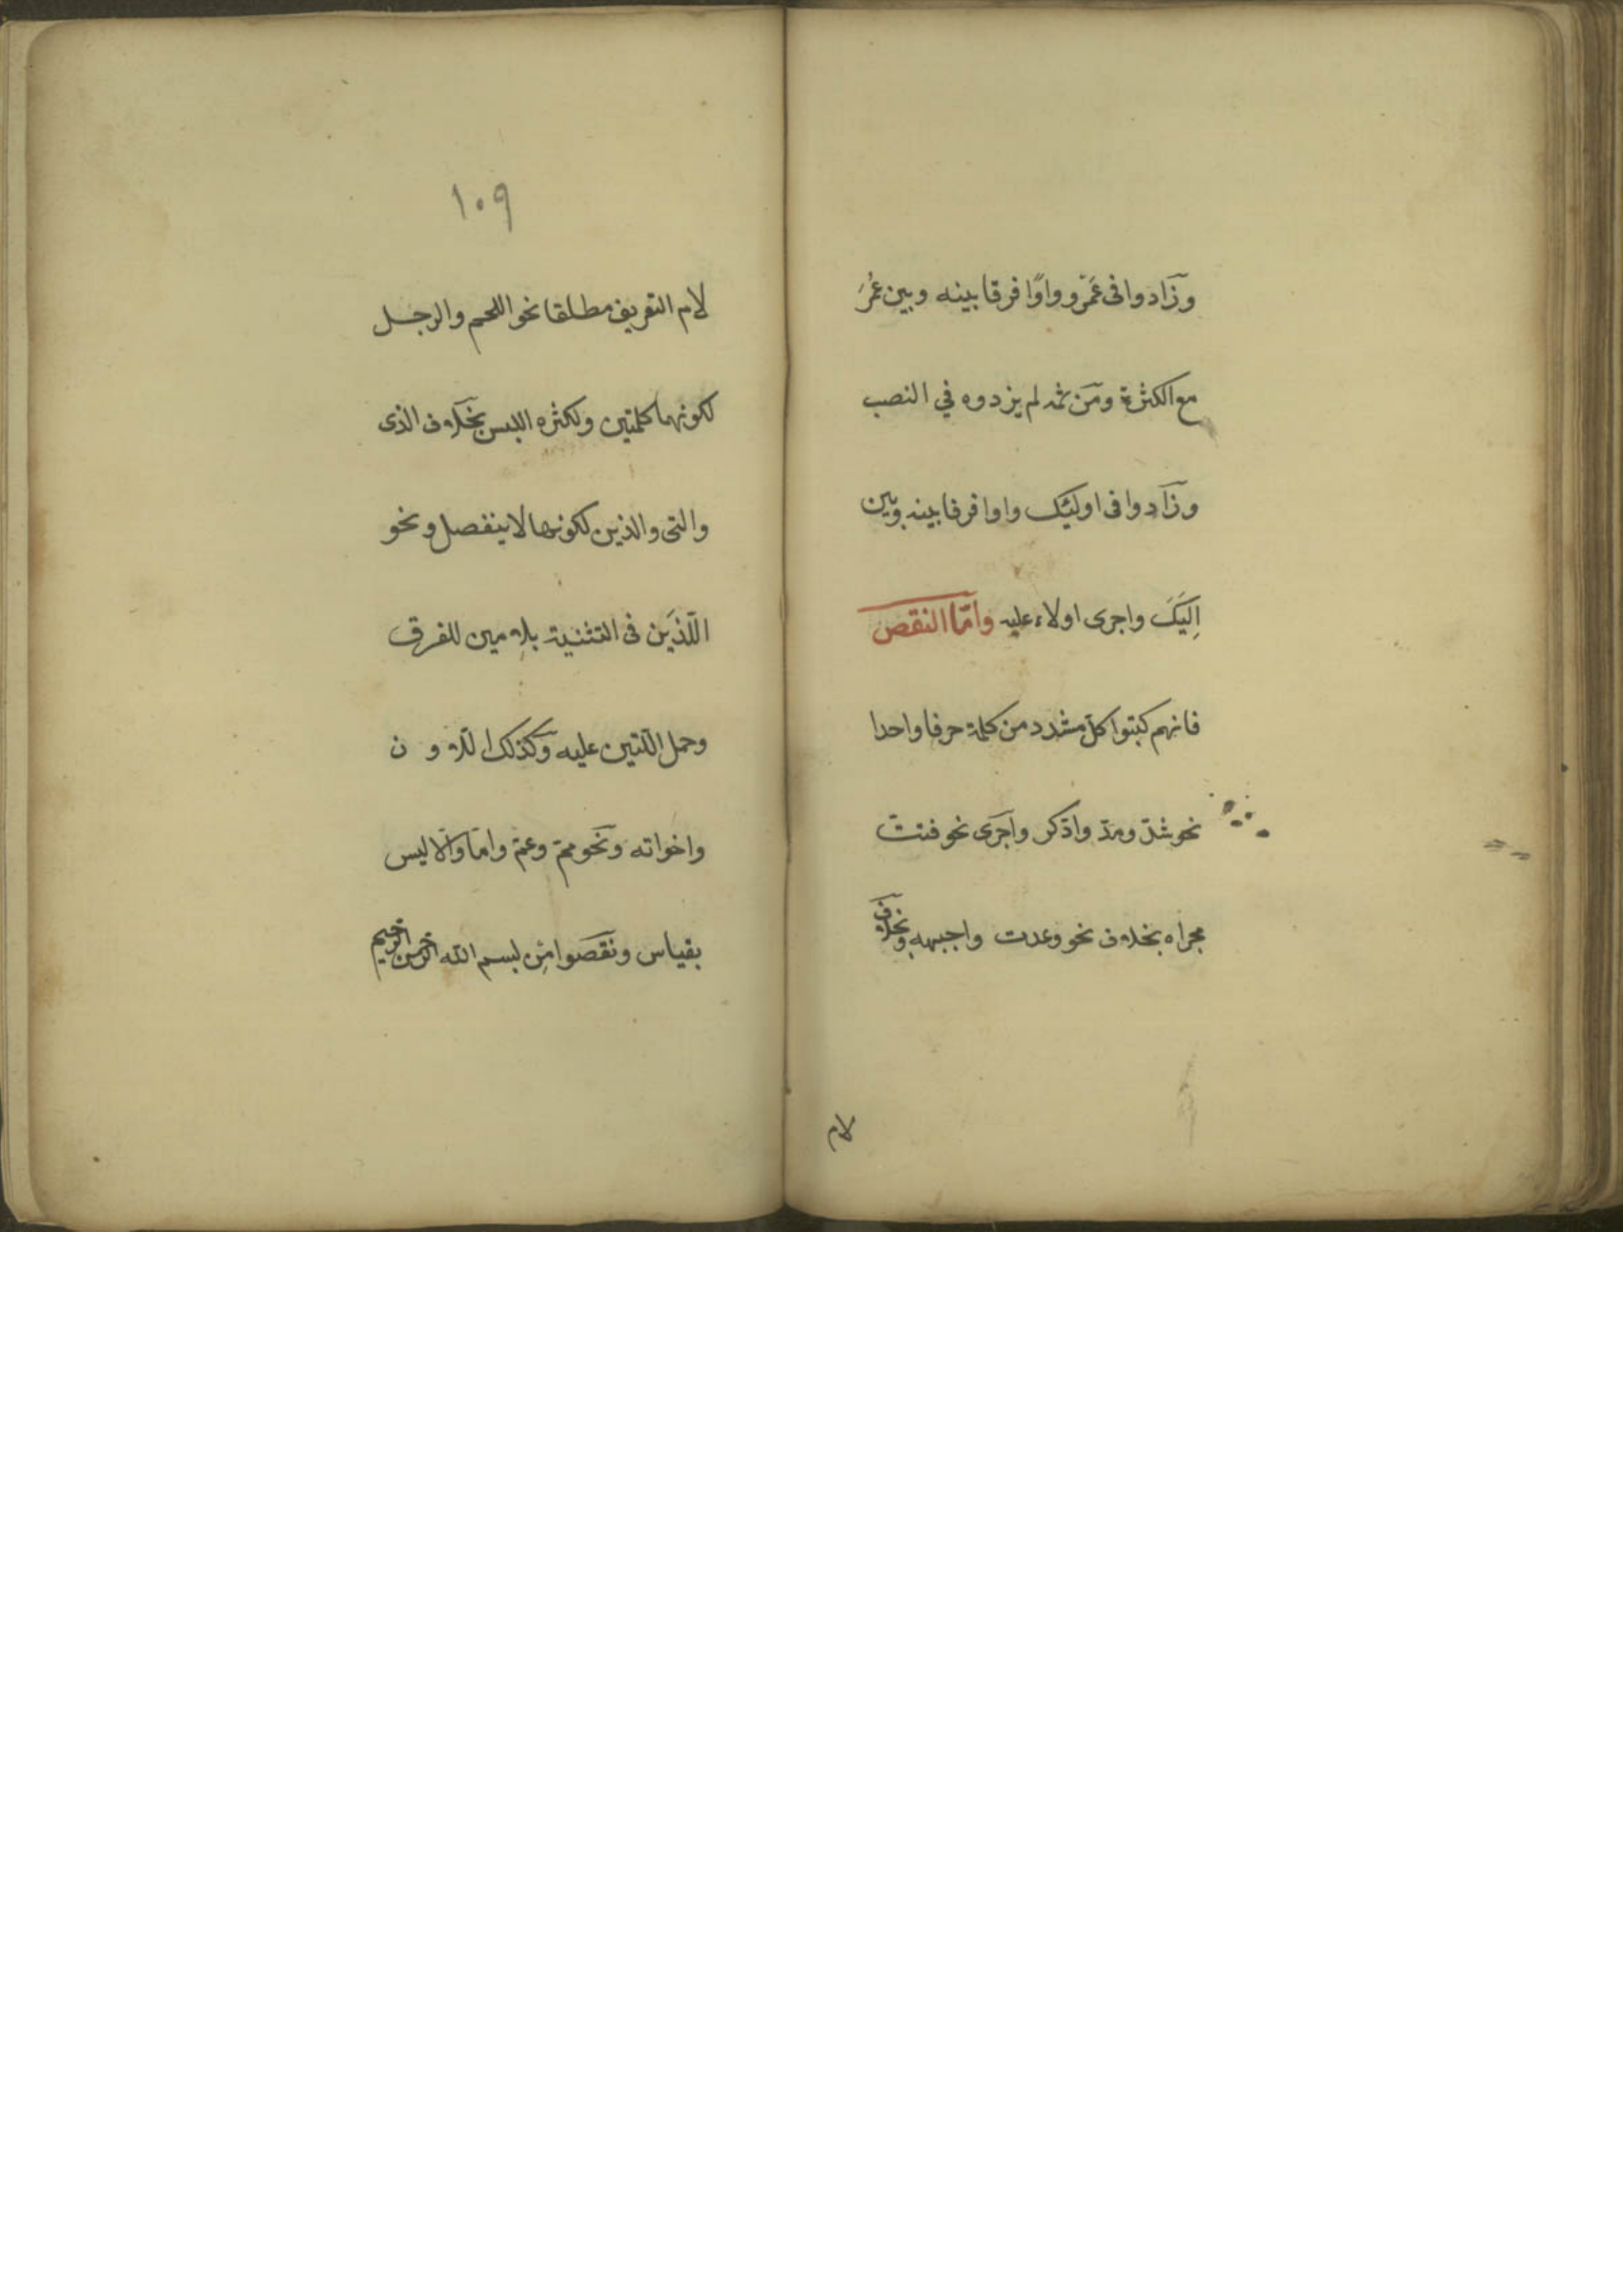 وزادوا فى عَمْرو واوًا فرقا بينه وبين عُمَرَ
مع الكثرة ومن ثمه لم يزدوه في النصب
وزادوا فى اولئك واوا فرقا بينه وبين
اِلَيكَ واجرى اولاء عليه وامّا النقص
فانهم كبتوا كلّ مشدد من كلمة حرفا واحدا
نحو شدّ ومدّ وادّكر واجرى نحو فتتّ
مجراه بخلاف نحو وعدت واجبهه وبخلاف
لام
١٠٩
لام التعريف مطلقا نحو اللحم والرجل
لكونهما كلمتين ولكثره اللبس بخلاف الذى
والتى والذين لكونها لا ينفصل ونحو
اللّذَين فى التثنية بلامين للفرق
وحمل اللّتين عليه وكذلك اللاؤن
واخواته ونحو ممّ وعمّ وامّا والّا ليس
بقياس ونقصوا مِن بسم الله الرحمن الرحيم